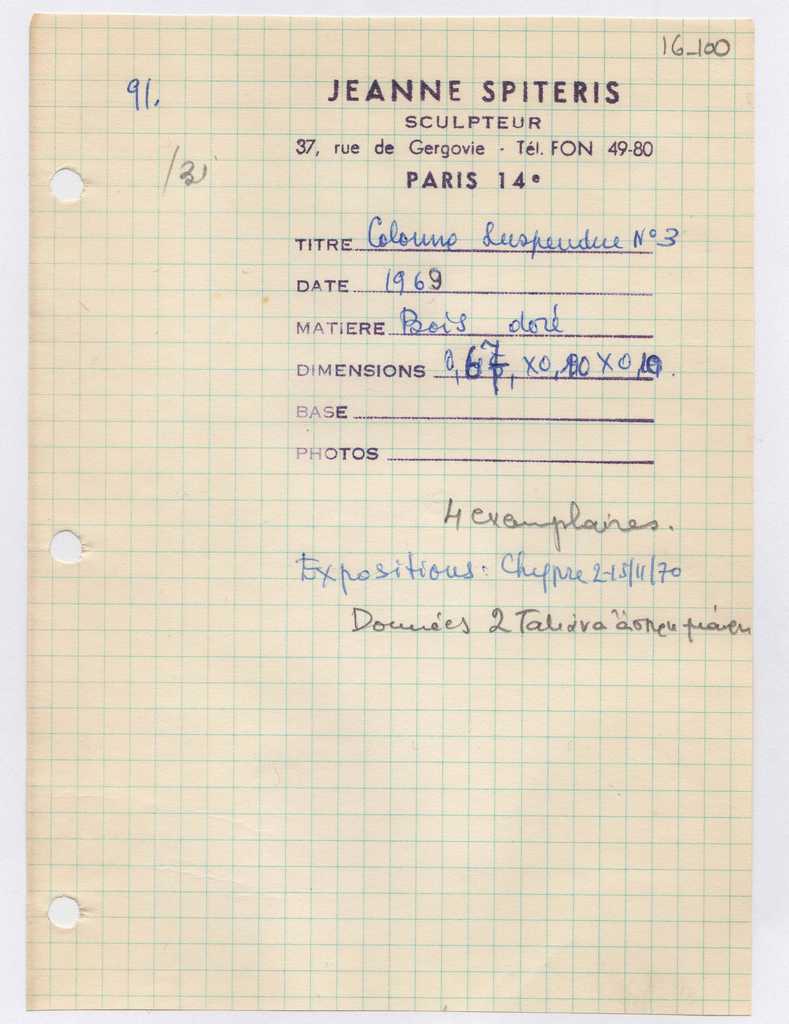 16_100
91.
JEANNE SPITERIS
SCULPTEUR
37, rue de Gergovie - Tél. FON 49-80
PARIS 14e
TITRE Colonne Suspendue N°3
DATE 1969
MATIERE Bois doré
DIMENSIONS 0,67, x0,10 x 0,10.
BASE
PHOTOS
4 exemplaires.
Expositions: Chypre 2-15/11/70
Données 2 άσπρη